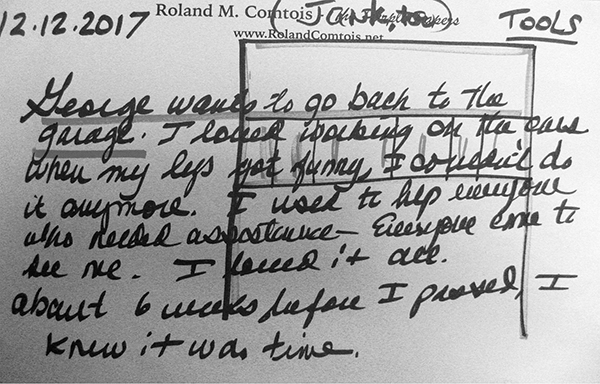 12.12.2017 Roland M. Comtois TOOLS
www.RolandComtois.net
George wants to go back to the
garage. I loved working on the cars
when my legs got funny, I couldn't do
it anymore. I used to help everyone
who needed assistance - Everyone came to
see me. I loved it all.
about 6 weeks before I passed, I
knew it was time.